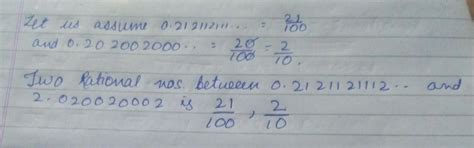 Let us assume 0.21211211... = 21/100
and 0.202002000... = 20/100 = 2/10.
Two Rational nos. between 0.2121121112.. and
2.020020002 is 21/100, 2/10